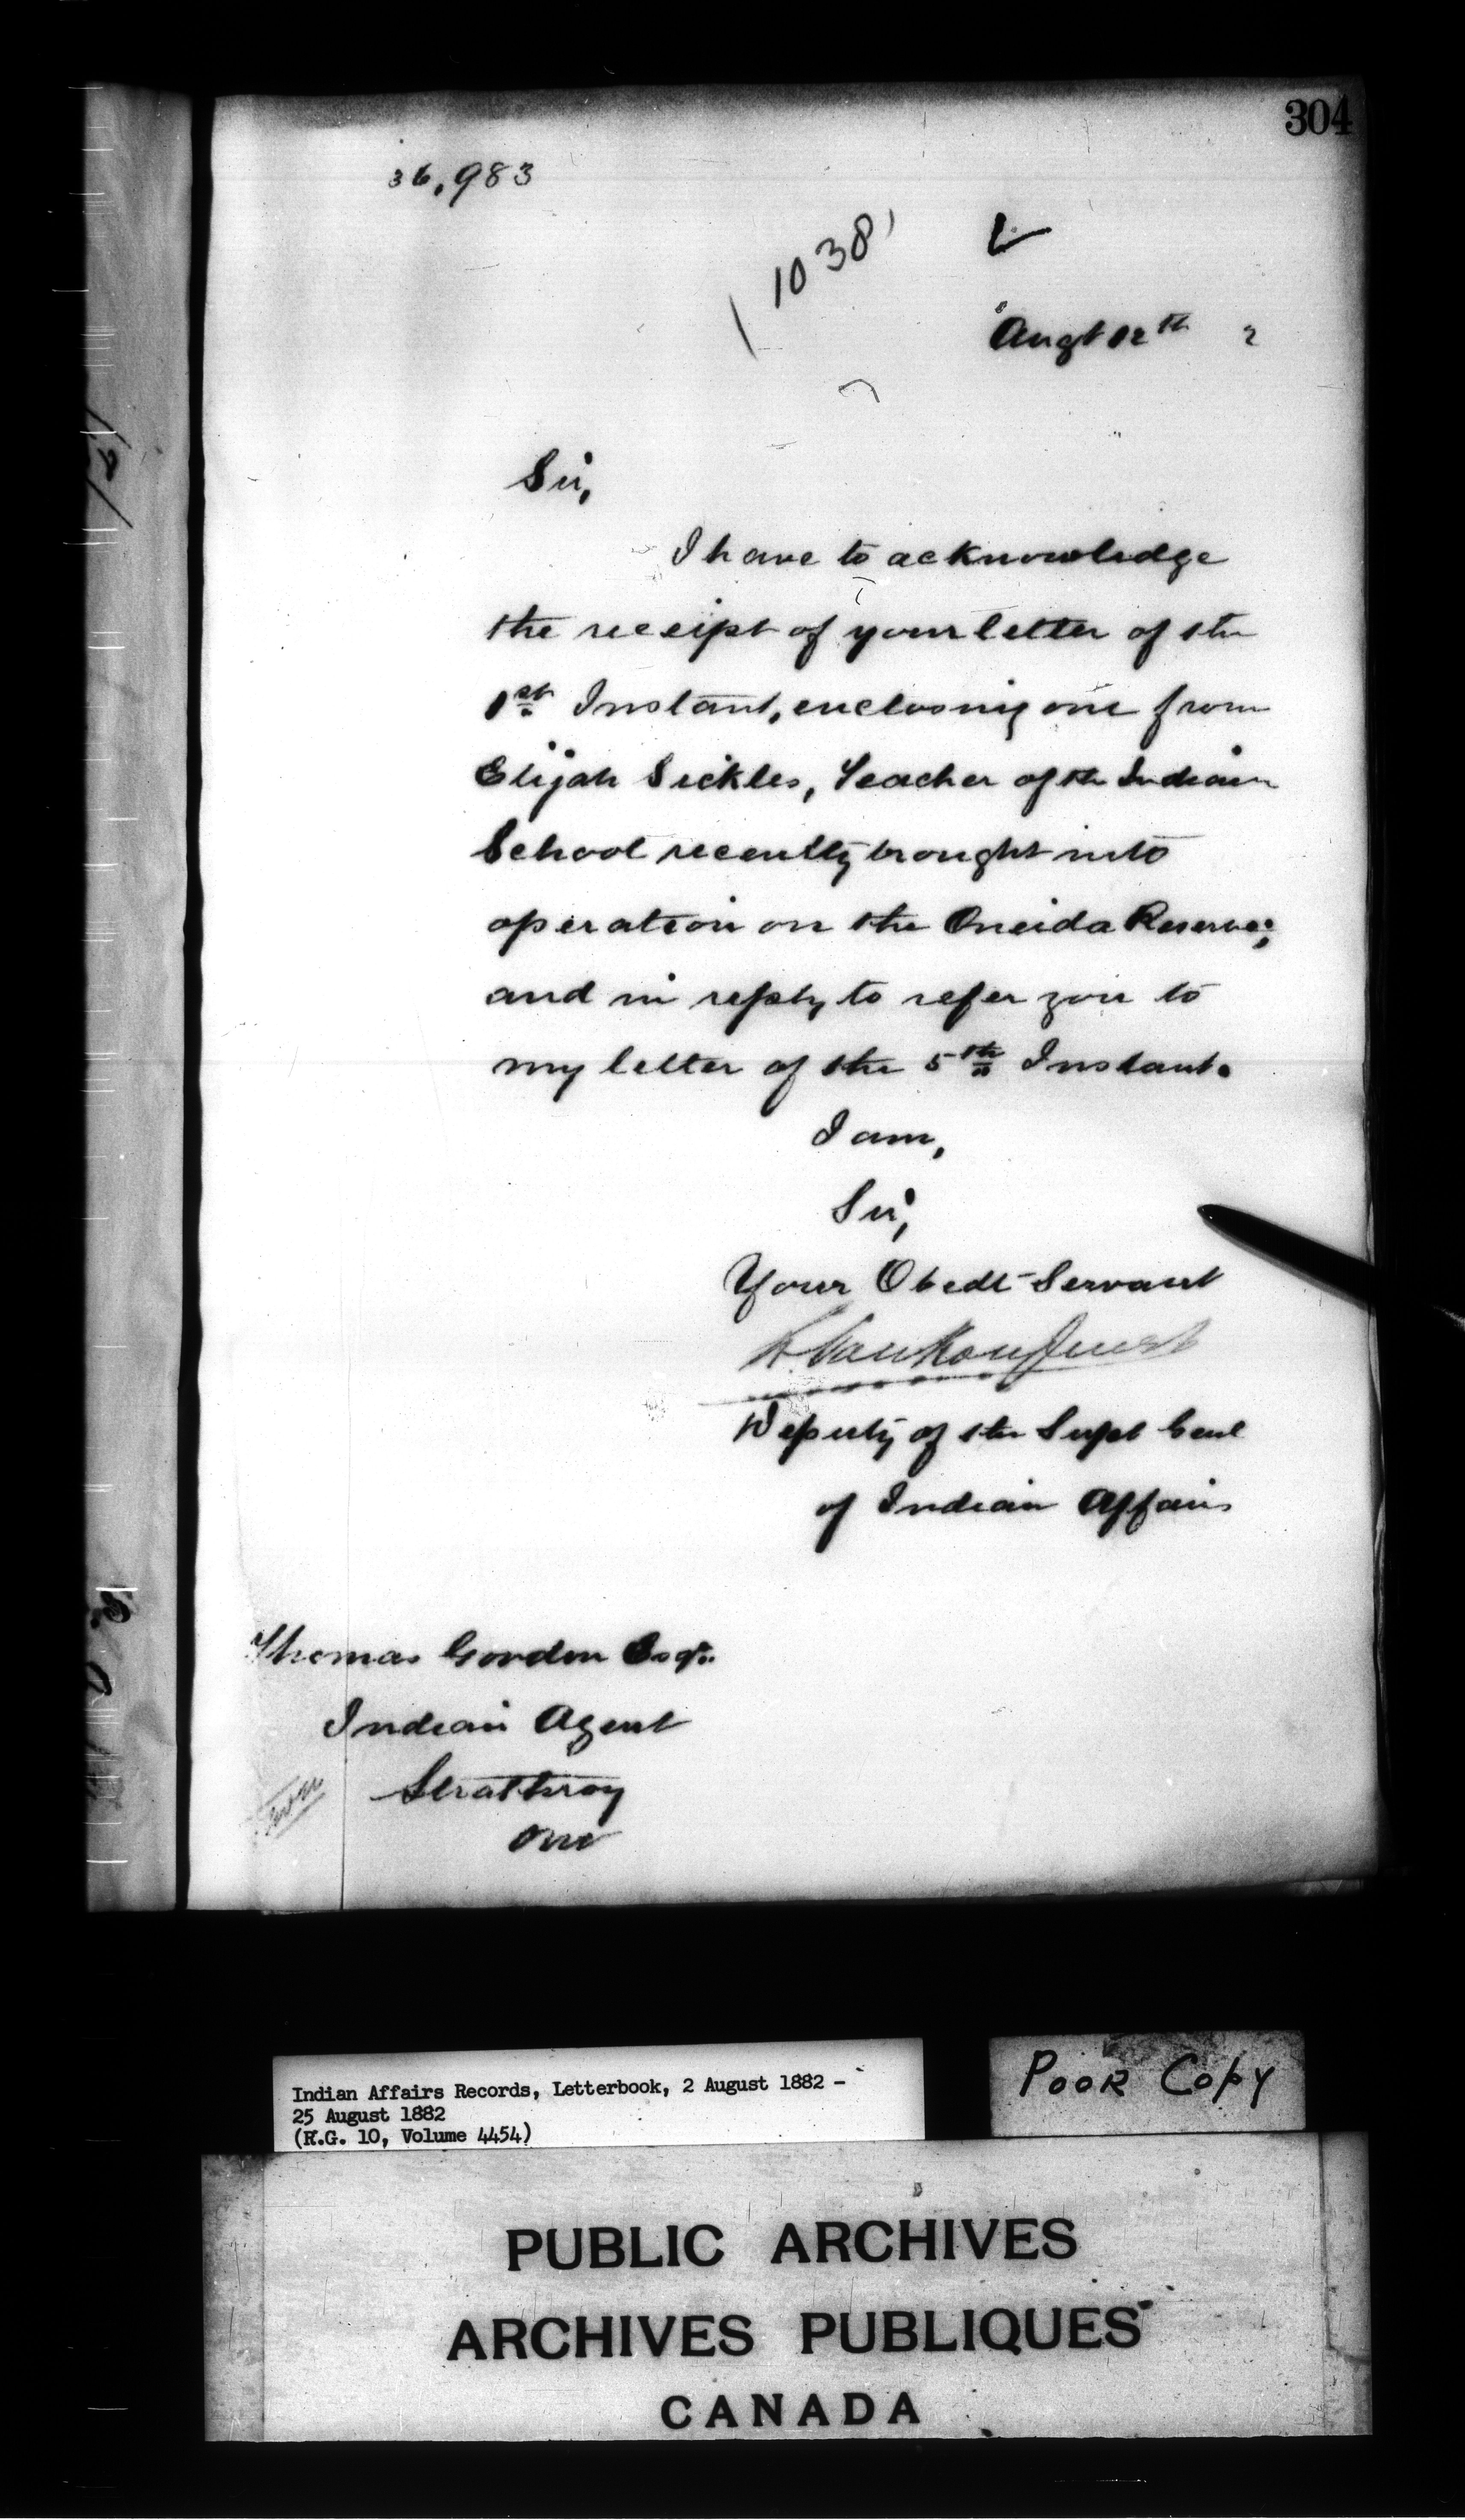 304
36,983
1038
Augt 12th 2
Sir,
I have to acknowledge
the receipt of your letter of the
1st Instant, enclosing one from
Elijah Sickles, Teacher of the Indian
School recently brought into
operation on the Oneida Reserve;
and in reply to refer you to
my letter of the 5th Instant.
I am,
Sir,
Your Obedt Servant
L. VanKoughnet
Deputy of the Supt Genl
of Indian Affairs
Thomas Gordon Esqr.
Indian Agent
Strathroy
Ont
Indian Affairs Records, Letterbook, 2 August 1882 -
25 August 1882
(R.G. 10, Volume 4454)
POOR COPY
PUBLIC ARCHIVES
ARCHIVES PUBLIQUES
CANADA